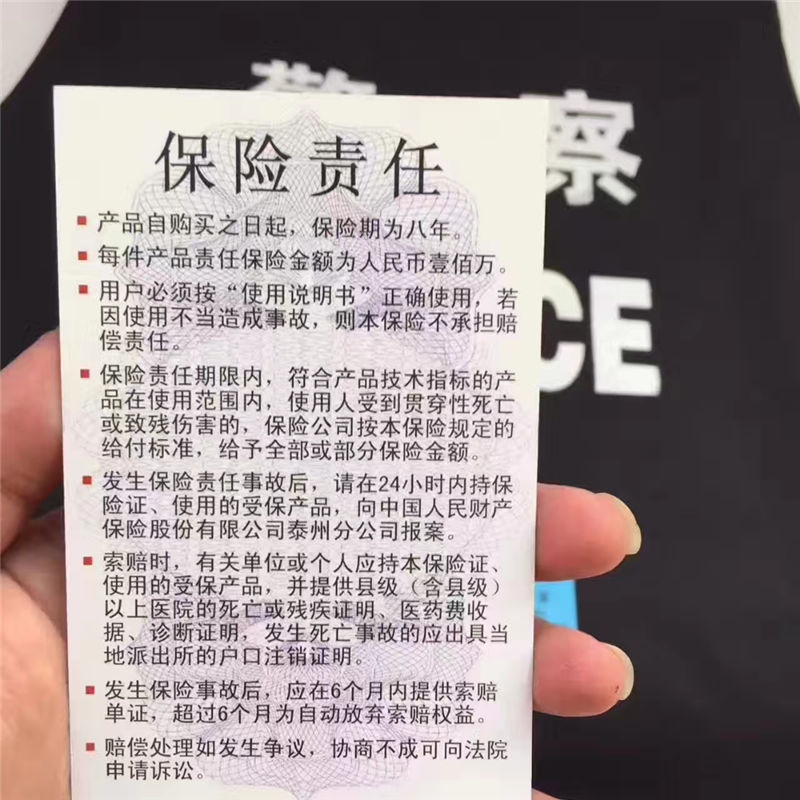 警 察
CE
保险责任
产品自购买之日起，保险期为八年。
每件产品责任保险金额为人民币壹佰万。
用户必须按“使用说明书”正确使用，若
因使用不当造成事故，则本保险不承担赔
偿责任。
保险责任期限内，符合产品技术指标的产
品在使用范围内，使用人受到贯穿性死亡
或致残伤害的，保险公司按本保险规定的
给付标准，给予全部或部分保险金额。
发生保险责任事故后，请在24小时内持保
险证、使用的受保产品，向中国人民财产
保险股份有限公司泰州分公司报案。
索赔时，有关单位或个人应持本保险证、
使用的受保产品，并提供县级（含县级）
以上医院的死亡或残疾证明、医药费收
据、诊断证明，发生死亡事故的应出具当
地派出所的户口注销证明。
发生保险事故后，应在6个月内提供索赔
单证，超过6个月为自动放弃索赔权益。
赔偿处理如发生争议，协商不成可向法院
申请诉讼。